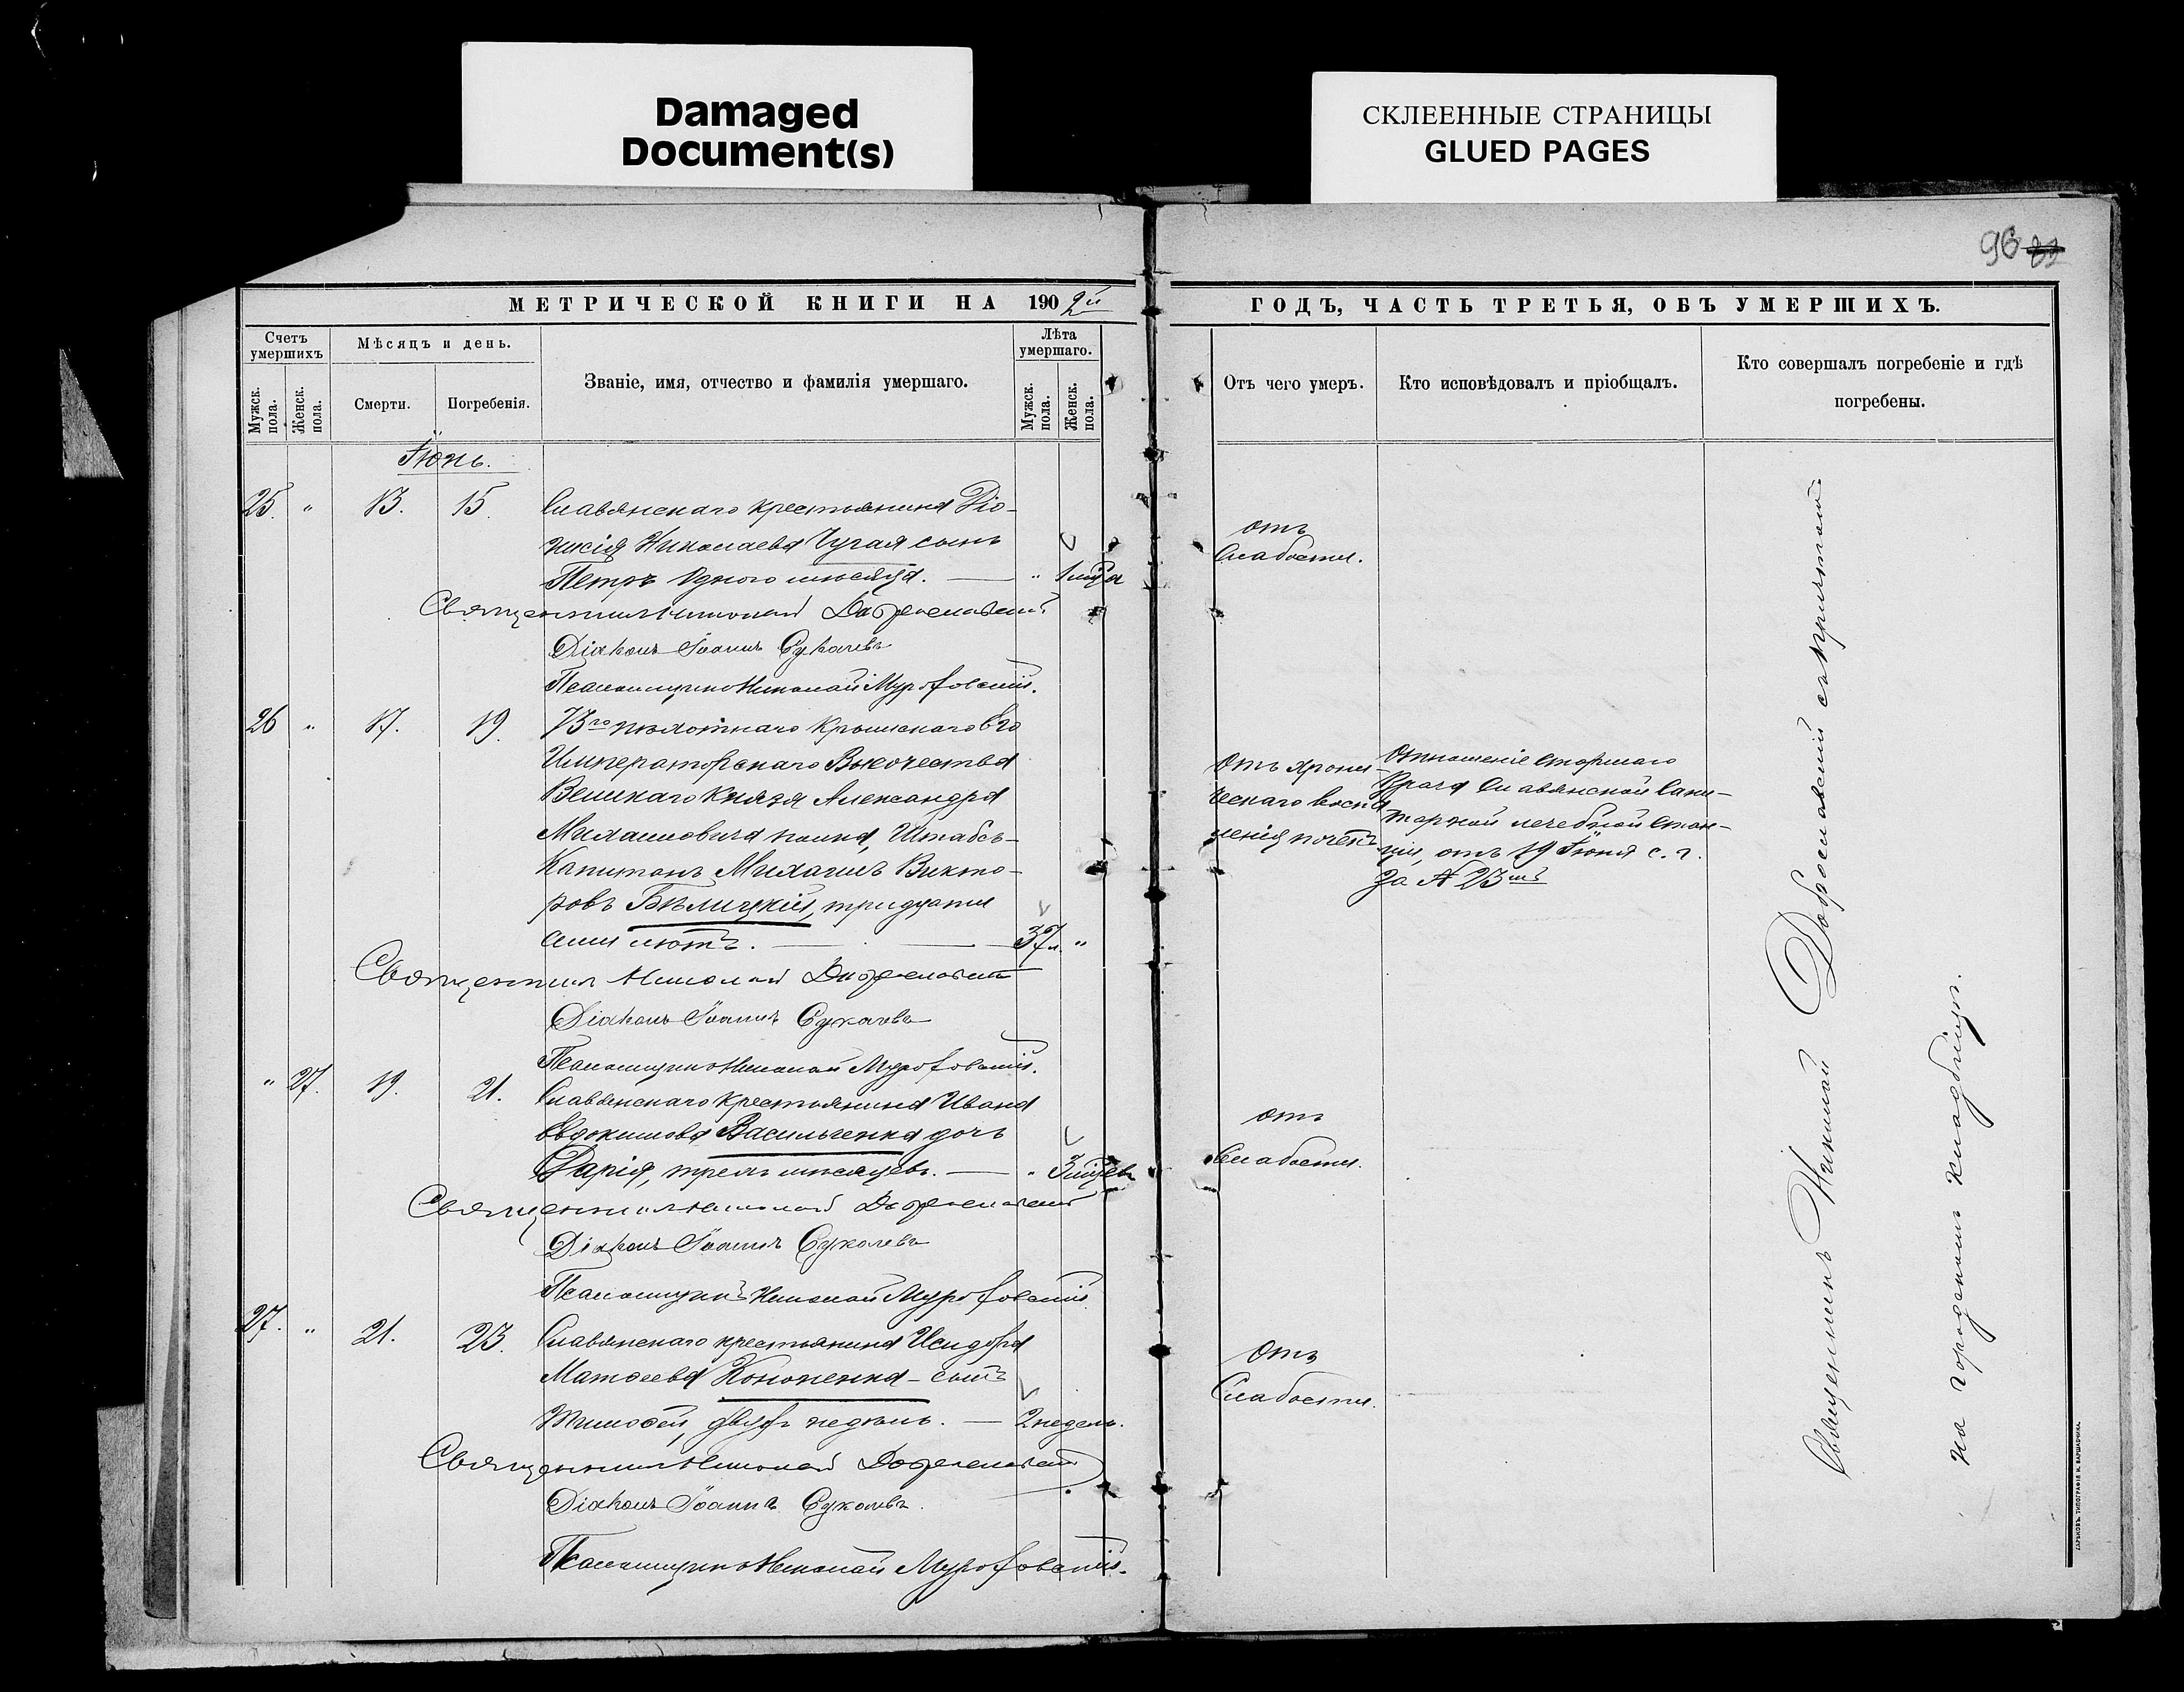 Damaged
Document(s)
СКЛЕЕННЫЕ СТРАНИЦЫ
GLUED PAGES
96 89
МЕТРИЧЕСКОЙ КНИГИ НА 1902й
ГОДЪ, ЧАСТЬ ТРЕТЬЯ, ОБЪ УМЕРШИХЪ.
Счетъ умершихъ
Мѣсяцъ и день.
Званіе, имя, отчество и фамилія умершаго.
Лѣта умершаго.
Мужск. пола.
Женск. пола.
Смерти.
Погребенія.
Мужск. пола.
Женск. пола.
Отъ чего умеръ.
Кто исповѣдовалъ и пріобщалъ.
Кто совершалъ погребеніе и гдѣ
погребены.
Іюнь.
25. " 13. 15. Славянскаго крестьянина Діо-
нисія Николаева Чугая сынъ
Петръ одного мѣсяца. — " 1 мѣца
отъ
Слабости.
Священникъ Николай Доброславскій
Діаконъ Іоаннъ Сукачевъ
Псаломщикъ Николай
26 " 17. 19. 73го пѣхотнаго Крымскаго Его
Императорскаго Высочества
Великаго Князя Александра
Михаиловича полка, Штабсъ-
Капитанъ Михаилъ Викто-
ровъ Бѣлицкій, тридцати
семи лѣтъ. — 37 л. "
Отъ хрони-
ческаго воспа
ленія почекъ
Отношеніе старшаго
Врача Славянской Сани-
тарной лечебной стан-
ціи, отъ 19 Іюня с. г.
за № 23мъ
Священникъ Николай Доброславскій
Діаконъ Іоаннъ Сукачевъ
Псаломщикъ Николай
" 27. 19. 21. Славянскаго крестьянина Ивана
Евдокимова Васильченка дочь
Дарія, трехъ мѣсяцевъ. — " 3 мѣцев
отъ
Слабости.
Священникъ Николай Доброславскій
Діаконъ Іоаннъ Сукачевъ
Псаломщикъ Николай
27. " 21. 23. Славянскаго крестьянина Исидора
Матѳеева Кононенка - сынъ
Тимоѳей, двухъ недѣль. — 2 недѣль.
Отъ
Слабости.
Священникъ Николай Доброславскій
Діаконъ Іоаннъ Сукачевъ.
Псаломщикъ Николай
Священникъ Николай Доброславскій съ причтомъ
на городскомъ кладбищѣ.
ХАРЬКОВЪ. ТИПОГРАФІЯ И. ВАРШАВЧИКА.